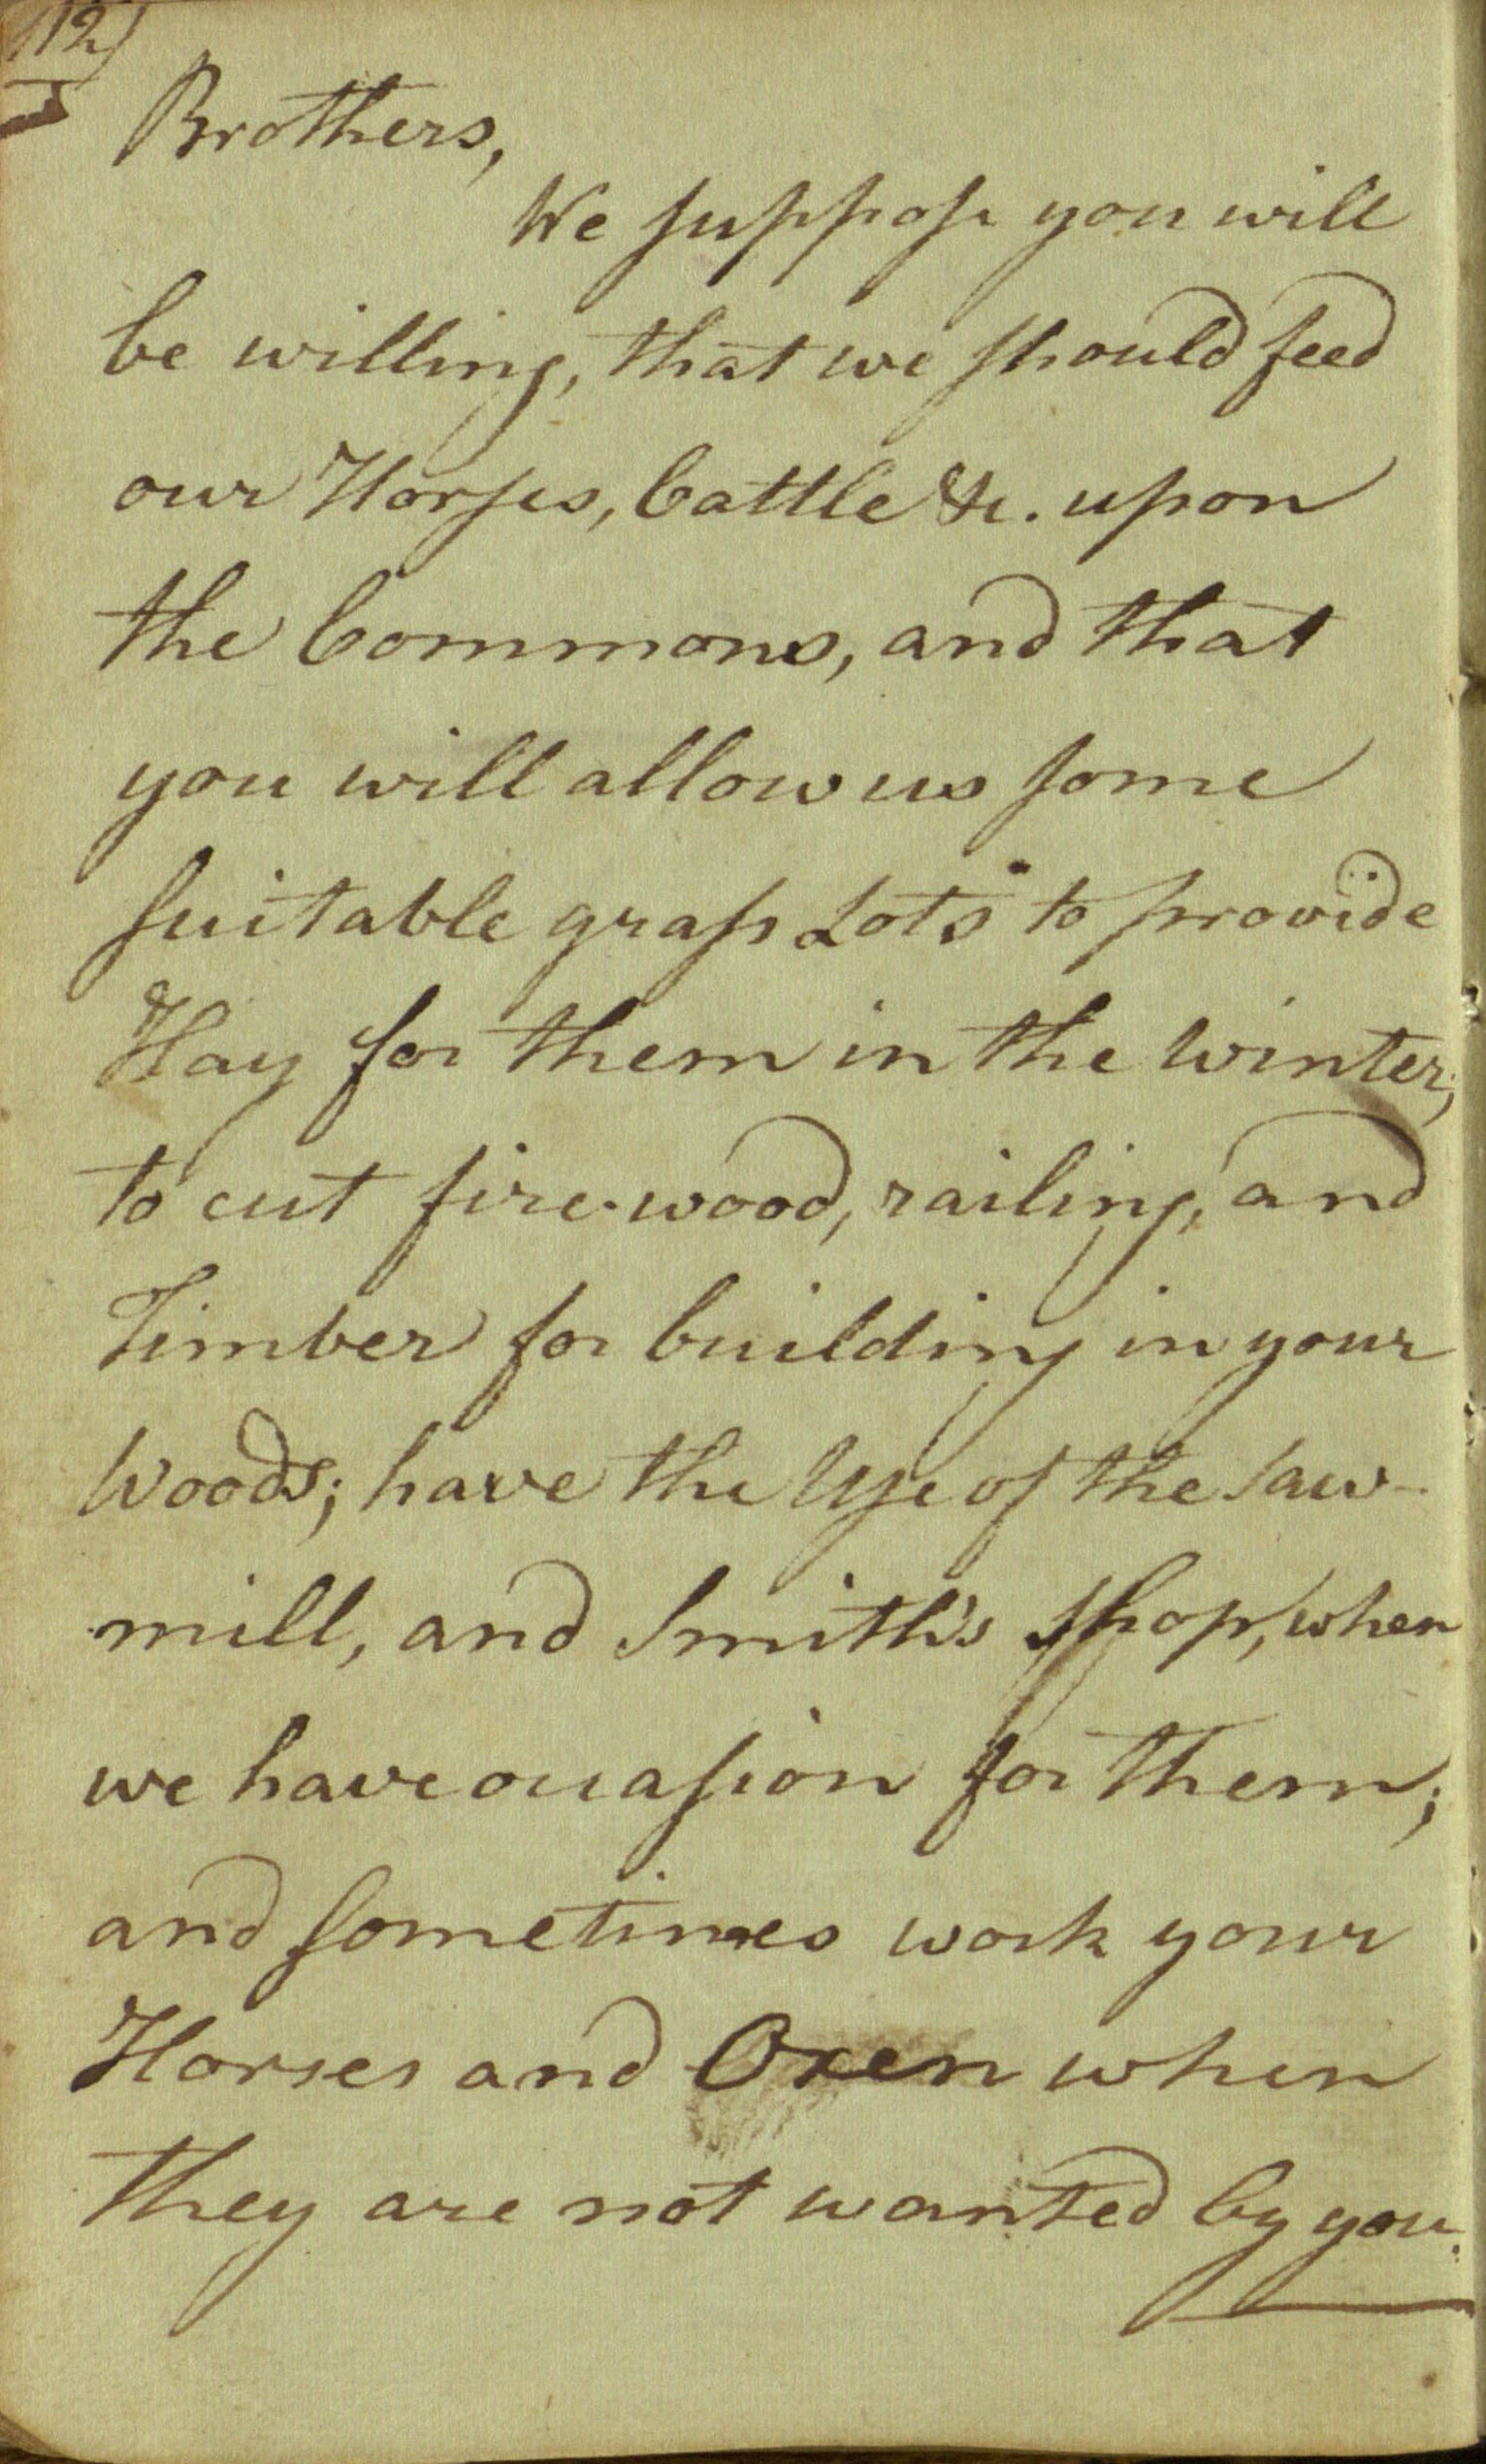 12)
Brothers,
We suppose you will
be willing, that we should feed
our Horses, Cattle &c. upon
the Commons, and that
you will allow us some
suitable grass Lots to provide
Hay for them in the Winter;
to cut fire-wood, railing, and
Timber for building in your
Woods; have the Use of the Saw-
mill, and Smith's Shop, when
we have occasion for them;
and sometimes work your
Horses and Oxen when
they are not wanted by you.